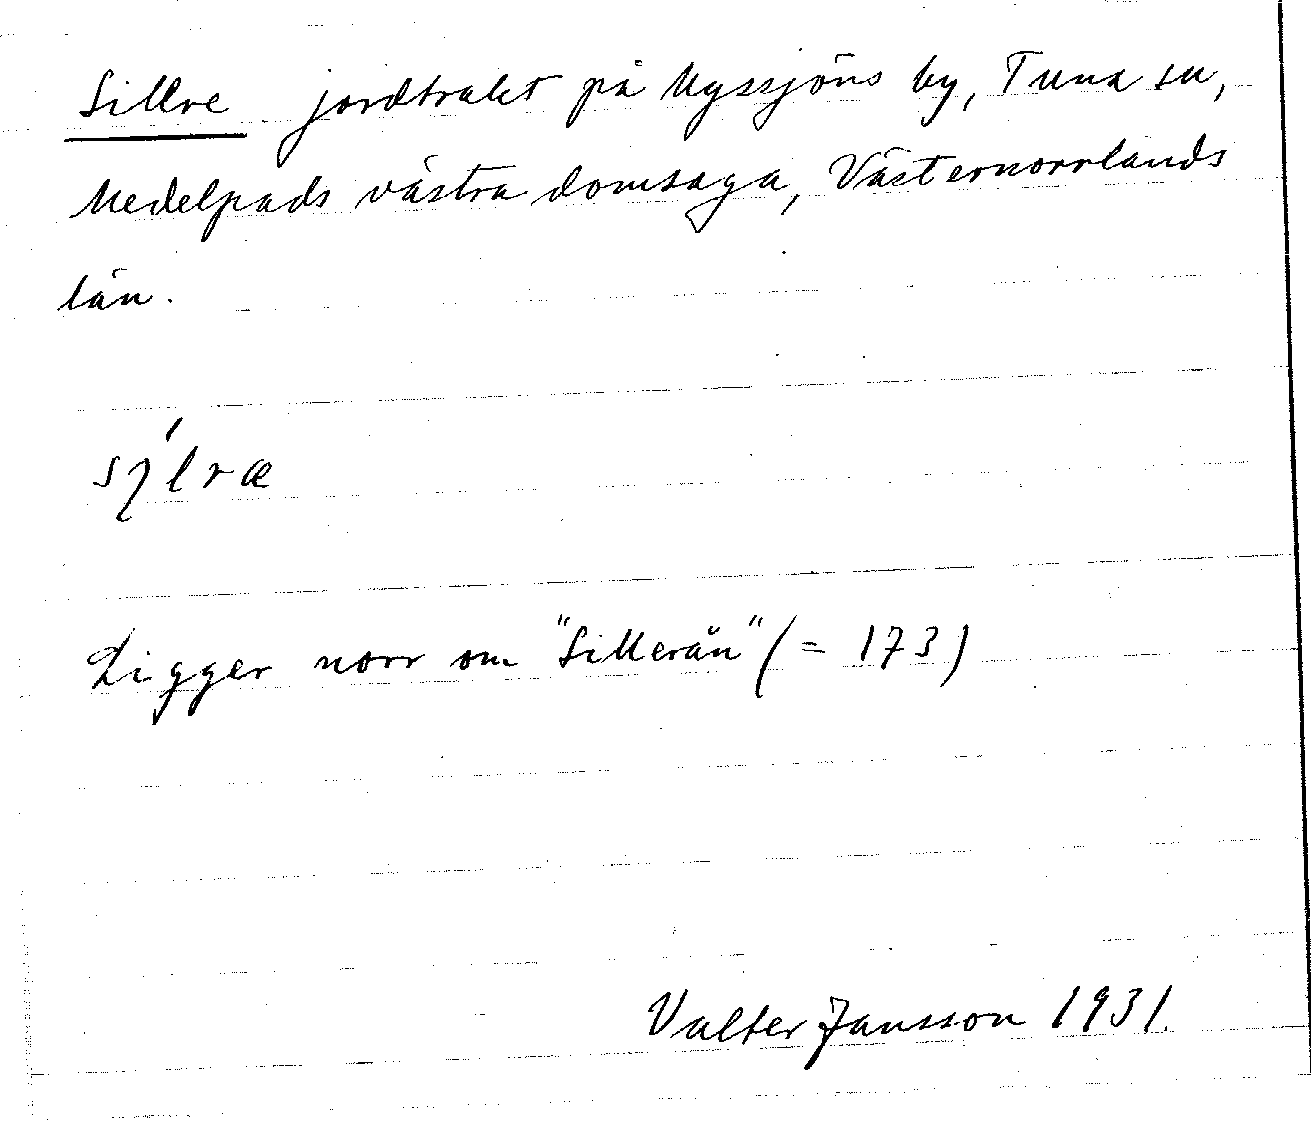 Sillre jordtrakt på Nyssjöns by, Tuna sn,
Medelpads västra domsaga, Västernorrlands
län.
sy̆́lræ
Ligger norr om "Sillerån" (= 173)
Valter Jansson 1931.